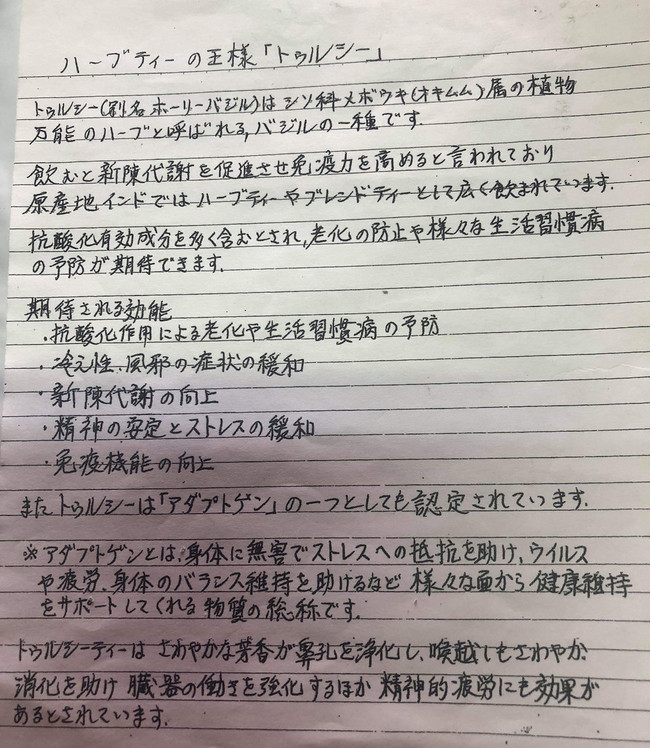 ハーブティーの王様「トゥルシー」
トゥルシー(別名ホーリーバジル)はシソ科メボウキ(オキムム)属の植物
万能のハーブと呼ばれる,バジルの一種です.
飲むと新陳代謝を促進させ免疫力を高めると言われており
原産地インドではハーブティーやブレンドティーとして広く飲まれています.
抗酸化有効成分を多く含むとされ,老化の防止や様々な生活習慣病
の予防が期待できます.
期待される効能
・抗酸化作用による老化や生活習慣病の予防
・冷え性、風邪の症状の緩和
・新陳代謝の向上
・精神の安定とストレスの緩和
・免疫機能の向上
またトゥルシーは「アダプトゲン」の一つとしても認定されています.
※アダプトゲンとは、身体に無害でストレスへの抵抗を助け,ウイルス
や疲労、身体のバランス維持を助けるなど様々な面から健康維持
をサポートしてくれる物質の総称です.
トゥルシーティーはさわやかな芳香が鼻孔を浄化し、喉越しもさわやか.
消化を助け臓器の働きを強化するほか精神的疲労にも効果が
あるとされています.